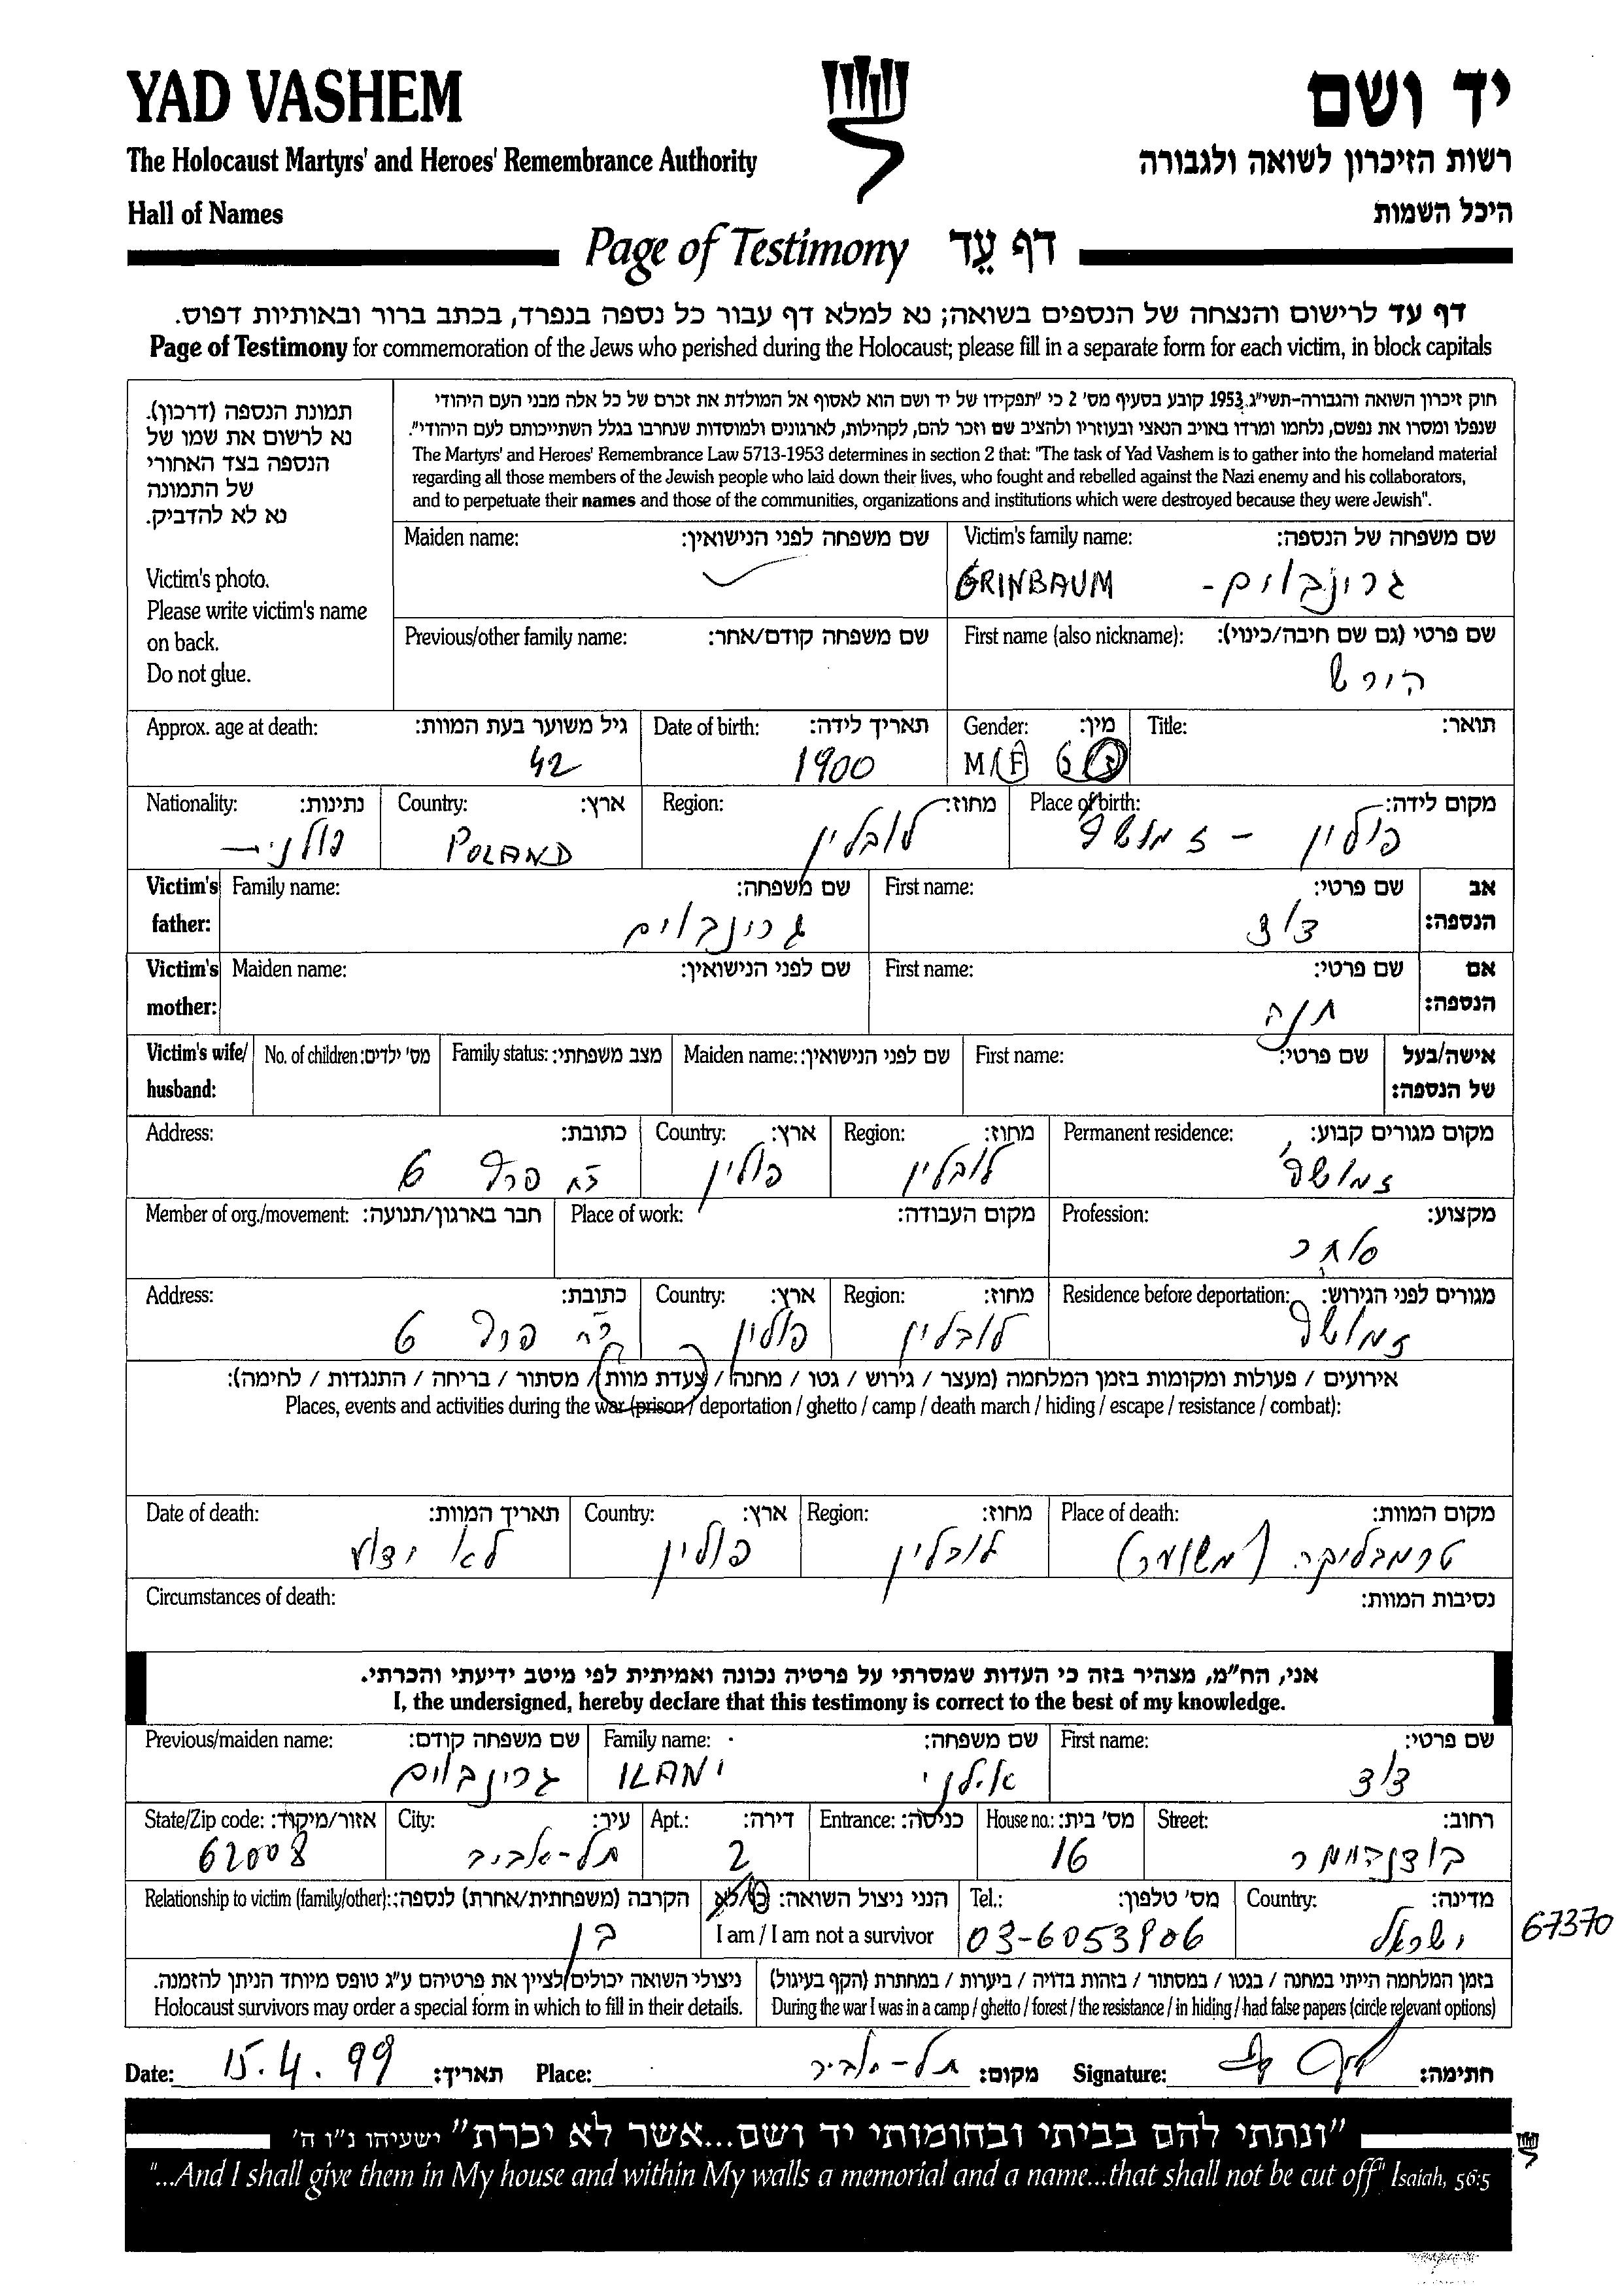 YAD VASHEM
יד ושם
The Holocaust Martyrs' and Heroes' Remembrance Authority
רשות הזיכרון לשואה ולגבורה
Hall of Names
היכל השמות
Page of Testimony דף עֵד
דף עד לרישום והנצחה של הנספים בשואה; נא למלא דף עבור כל נספה בנפרד, בכתב ברור ובאותיות דפוס.
Page of Testimony for commemoration of the Jews who perished during the Holocaust; please fill in a separate form for each victim, in block capitals
תמונת הנספה (דרכון).
נא לרשום את שמו של
הנספה בצד האחורי
של התמונה
נא לא להדביק.
Victim's photo.
Please write victim's name
on back.
Do not glue.
חוק זיכרון השואה והגבורה-תשי"ג 1953 קובע בסעיף מס' 2 כי "תפקידו של יד ושם הוא לאסוף אל המולדת את זכרם של כל אלה מבני העם היהודי
שנפלו ומסרו את נפשם, נלחמו ומרדו באויב הנאצי ובעוזריו ולהציב שם וזכר להם, לקהילות, לארגונים ולמוסדות שנחרבו בגלל השתייכותם לעם היהודי".
The Martyrs' and Heroes' Remembrance Law 5713-1953 determines in section 2 that: "The task of Yad Vashem is to gather into the homeland material
regarding all those members of the Jewish people who laid down their lives, who fought and rebelled against the Nazi enemy and his collaborators,
and to perpetuate their names and those of the communities, organizations and institutions which were destroyed because they were Jewish".
Maiden name: שם משפחה לפני הנישואין: Victim's family name: שם משפחה של הנספה:
GRINBAUM - גרינבוים
Previous/other family name: שם משפחה קודם/אחר: First name (also nickname): שם פרטי (גם שם חיבה/כינוי):
הירש
Approx. age at death: גיל משוער בעת המוות: Date of birth: תאריך לידה: Gender: מין: Title: תואר:
42 1900 M/F ז/נ
Nationality: נתינות: Country: ארץ: Region: מחוז: Place of birth: מקום לידה:
פולני POLAND לובלין פולין - זמושץ
Victim's father: Family name: שם משפחה: First name: שם פרטי: אב הנספה:
גרינבוים דוד
Victim's mother: Maiden name: שם לפני הנישואין: First name: שם פרטי: אם הנספה:
חנה
Victim's wife/ husband: No. of children: מס' ילדים: Family status: מצב משפחתי: Maiden name: שם לפני הנישואין: First name: שם פרטי: אישה/בעל של הנספה:
Address: כתובת: Country: ארץ: Region: מחוז: Permanent residence: מקום מגורים קבוע:
6 פולין לובלין זמושץ
Member of org./movement: חבר בארגון/תנועה: Place of work: מקום העבודה: Profession: מקצוע:
סוחר
Address: כתובת: Country: ארץ: Region: מחוז: Residence before deportation: מגורים לפני הגירוש:
6 פולין לובלין זמושץ
אירועים / פעולות ומקומות בזמן המלחמה (מעצר / גירוש / גטו / מחנה / צעדת מוות / מסתור / בריחה / התנגדות / לחימה):
Places, events and activities during the war (prison / deportation / ghetto / camp / death march / hiding / escape / resistance / combat):
Date of death: תאריך המוות: Country: ארץ: Region: מחוז: Place of death: מקום המוות:
לא ידוע פולין לובלין טרמבליקה (משוער)
Circumstances of death: נסיבות המוות:
אני, הח"מ, מצהיר בזה כי העדות שמסרתי על פרטיה נכונה ואמיתית לפי מיטב ידיעתי והכרתי.
I, the undersigned, hereby declare that this testimony is correct to the best of my knowledge.
Previous/maiden name: שם משפחה קודם: Family name: שם משפחה: First name: שם פרטי:
גרינבוים ILANI אילני דוד
State/Zip code: אזור/מיקוד: City: עיר: Apt.: דירה: Entrance: כניסה: House no.: מס' בית: Street: רחוב:
62008 תל-אביב 2 16 בודנהיימר
Relationship to victim (family/other): הקרבה (משפחתית/אחרת) לנספה: הנני ניצול השואה: כן/לא Tel.: מס' טלפון: Country: מדינה:
בן I am / I am not a survivor 03-6053906 ישראל 67370
ניצולי השואה יכולים לציין את פרטיהם ע"ג טופס מיוחד הניתן להזמנה. בזמן המלחמה הייתי במחנה / בגטו / במסתור / בזהות בדויה / ביערות / במחתרת (הקף בעיגול)
Holocaust survivors may order a special form in which to fill in their details. During the war I was in a camp / ghetto / forest / the resistance / in hiding / had false papers (circle relevant options)
Date: 15.4.99 תאריך: Place: תל-אביב מקום: Signature: חתימה:
"ונתתי להם בביתי ובחומותי יד ושם...אשר לא יכרת" ישעיהו נ"ו ה'
"...And I shall give them in My house and within My walls a memorial and a name...that shall not be cut off" Isaiah, 56:5